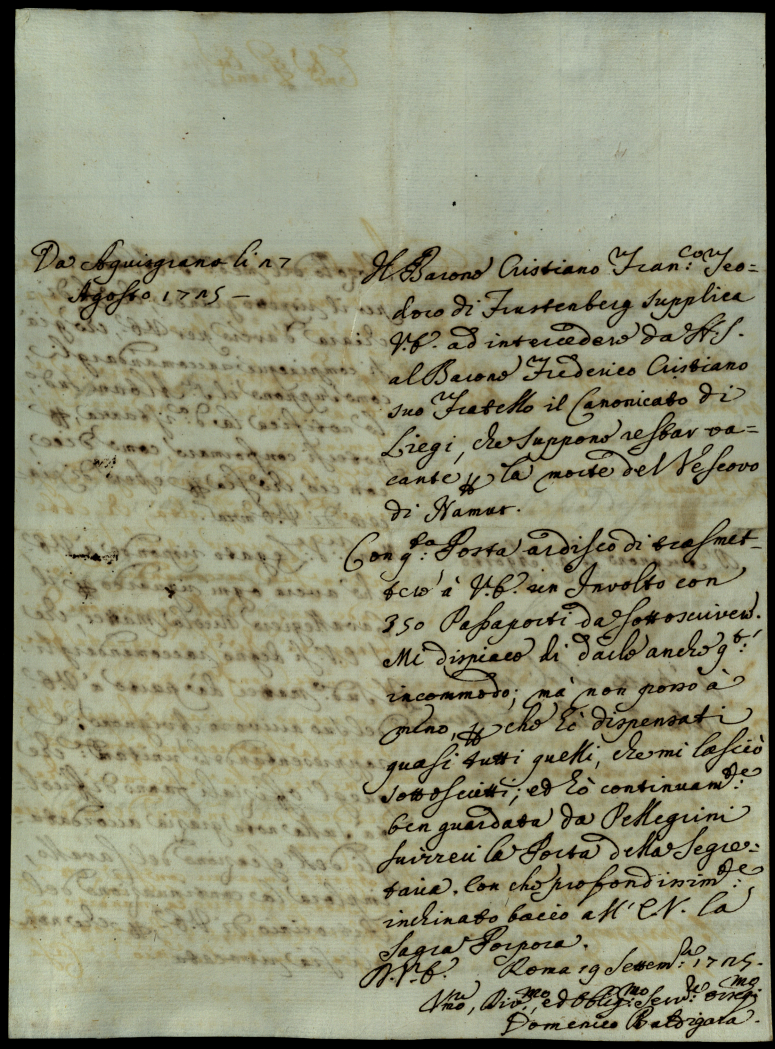 Da Aquisgrano li 27
Agosto 1725 —
Il Barone Cristiano Fran.co Teo=
doro di Frustenberg supplica
V.E. ad intercedere da N.S.
al Barone Frederico Cristiano
suo Fratello il Canonicato di
Liegi, che suppone restar va=
cante p la morte del Vescovo
di Namur.
Con q.ta Posta ardisco di trasmet=
tere à V.E. un Involto con
350 Passaporti da sottoscrivere.
Mi dispiace di darle anche q.to
incommodo; mà non posso à
meno, p che hò dispensati
quasi tutti quelli, che mi lasciò
sottoscritti; ed hò continuam.te
ben guardata da Pellegrini
Svizzeri la Porta della Segre=
taria. Con che profondissim.te
inchinato bacio all' E.V. la
Sagra Porpora.
D.V.E. Roma 19 Settem.re 1725.
Vmo, Div.mo, ed Obblig.mo Ser.re
Domenico Baldigara.